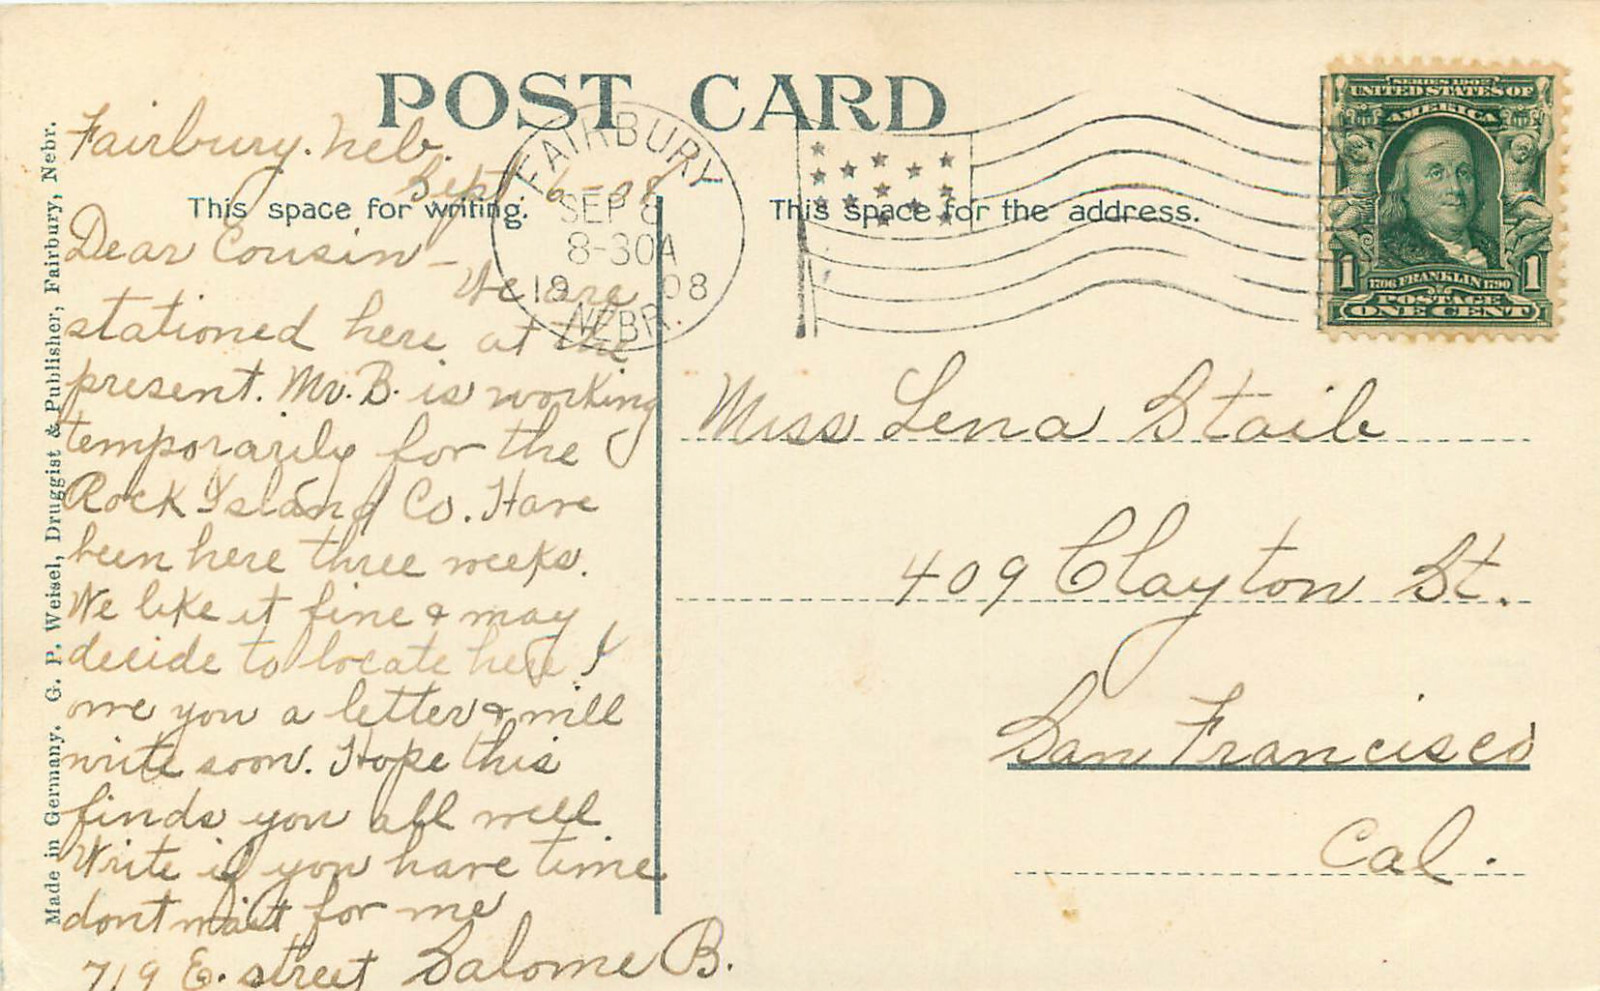 POST CARD
Fairbury. Neb.
Sept 6 - 08
This space for writing.
Dear Cousin -
We are
stationed here at the
present. Mr. B. is working
temporarily for the
Rock Island Co. Have
been here three weeks.
We like it fine & may
decide to locate here. I
owe you a letter & will
write soon. Hope this
finds you all well.
Write if you have time
dont wait for me
719 E. street Salome B.
Made in Germany. G. P. Weisel, Druggist & Publisher, Fairbury, Nebr.
FAIRBURY
SEP 8
8-30A
1908
NEBR.
This space for the address.
SERIES 1902
UNITED STATES OF
AMERICA
1 1706 FRANKLIN 1790 1
POSTAGE
ONE CENT
Miss Lena Staib
409 Clayton St.
San Francisco
Cal.